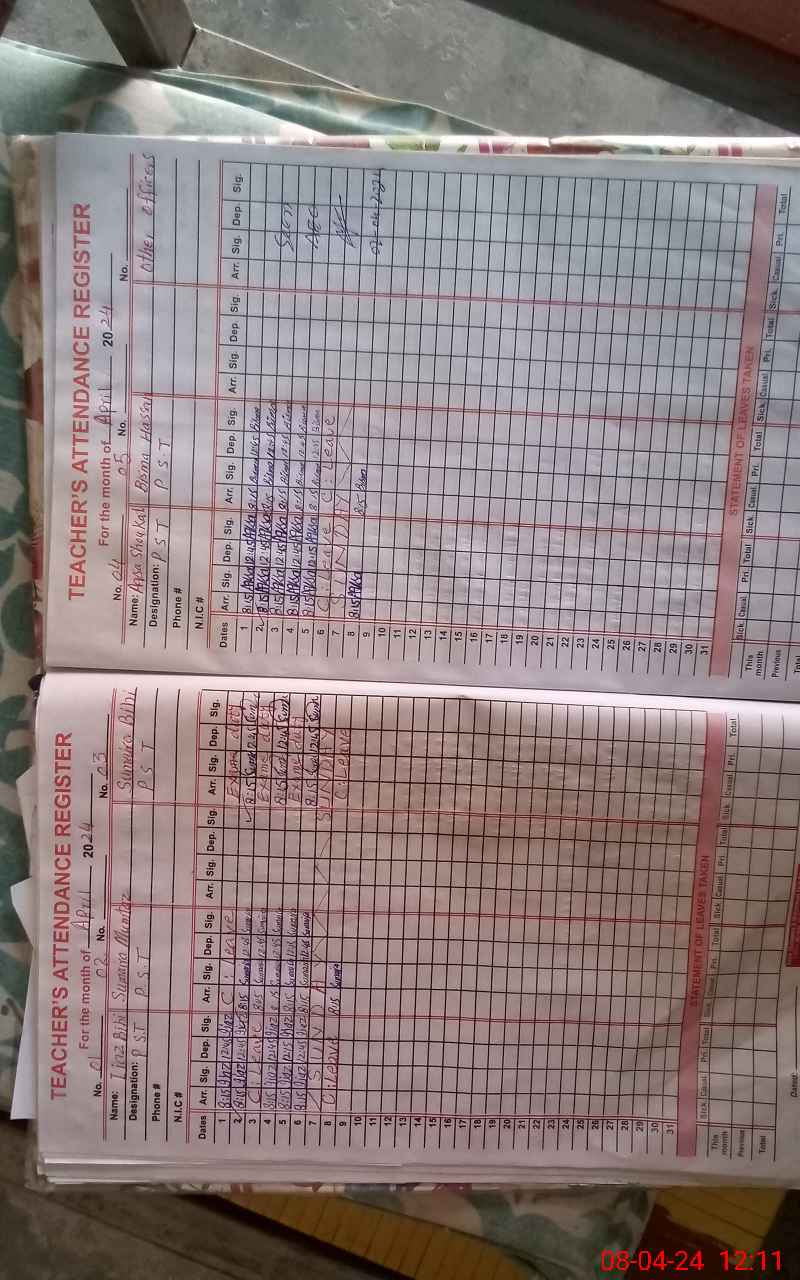 TEACHER'S ATTENDANCE REGISTER
For the month of April 2024
No. 01 No. 02 No. 03
Name: Ijaz Bibi Sumaira Mumtaz Sumaira Bibi
Designation: P.S.T P.S.T P S T
Phone #
N.I.C #
Dates Arr. Sig. Dep. Sig. Arr. Sig. Dep. Sig. Arr. Sig. Dep. Sig. Arr. Sig. Dep. Sig.
1 8:15 Ijaz 12:45 Ijaz C: Leave Exime duty
2 8:15 Ijaz 12:45 Ijaz 8:15 Sumaira 12:45 Sumaira 8:15 12:45
3 C: Leave 8:15 Sumaira 12:45 Sumaira Exime duty
4 8:15 Ijaz 12:45 Ijaz 8:15 Sumaira 12:45 Sumaira 8:15 12:45
5 8:15 Ijaz 12:45 Ijaz 8:15 Sumaira 12:45 Sumaira Exime duty
6 8:15 Ijaz 12:45 Ijaz 8:15 Sumaira 12:45 Sumaira 8:15 12:45
7 SUNDAY SUNDAY
8 C: Leave 8:15 Sumaira C: Leave
9
10
11
12
13
14
15
16
17
18
19
20
21
22
23
24
25
26
27
28
29
30
31
STATEMENT OF LEAVES TAKEN
Sick Casual Pri. Total Sick Casual Pri. Total Sick Casual Pri. Total Sick Casual Pri. Total
This month
Previous
Total
Dated:
TEACHER'S ATTENDANCE REGISTER
For the month of April 2024
No. 04 No. 05 No.
Name: Aqsa Shoukat Bisma Hassan Other Officers
Designation: P S T P S T
Phone #
N.I.C #
Dates Arr. Sig. Dep. Sig. Arr. Sig. Dep. Sig. Arr. Sig. Dep. Sig. Arr. Sig. Dep. Sig.
1 8:15 Aqsa 12:45 Aqsa 8:15 Bisma 12:45 Bisma
2 8:15 Aqsa 12:45 Aqsa 8:15 Bisma 12:45 Bisma
3 8:15 Aqsa 12:45 Aqsa 8:15 Bisma 12:45 Bisma
4 8:15 Aqsa 12:45 Aqsa 8:15 Bisma 12:45 Bisma
5 8:15 Aqsa 12:45 Aqsa 8:15 Bisma 12:45 Bisma
6 C: Leave C: Leave
7 SUNDAY
8 8:15 Aqsa 8:15 Bisma
9 02-04-2024
10
11
12
13
14
15
16
17
18
19
20
21
22
23
24
25
26
27
28
29
30
31
STATEMENT OF LEAVES TAKEN
Sick Casual Pri. Total Sick Casual Pri. Total Sick Casual Pri. Total Sick Casual Pri. Total
This month
Previous
Total
08-04-24 12:11